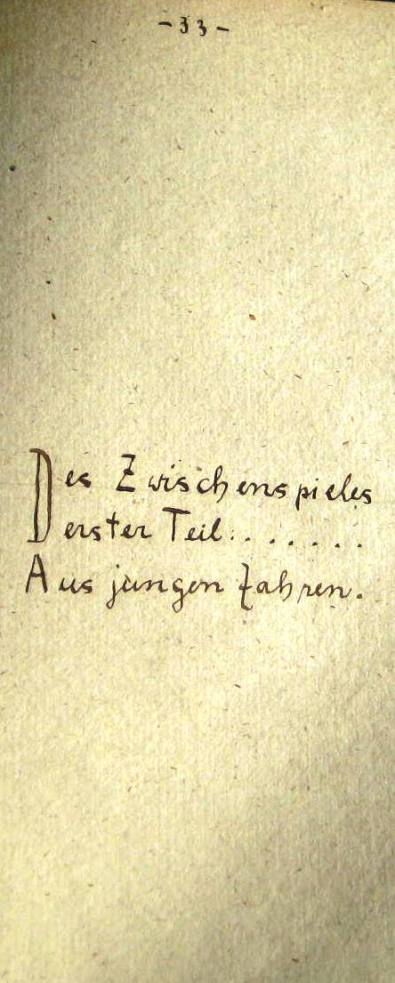 -33-
Des Zwischenspieles
erster Teil:.......
Aus jungen Jahren.